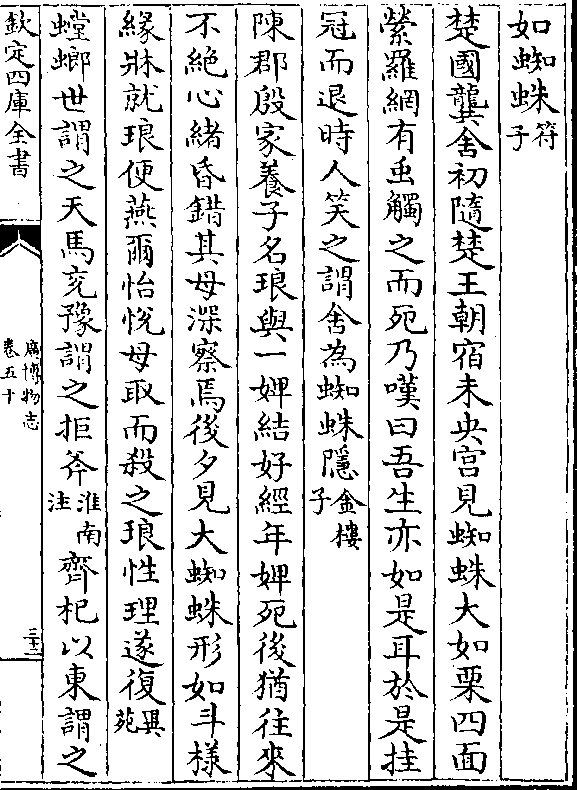 如蜘蛛符子
楚國龔舍初隨楚王朝宿未央宫見蜘蛛大如栗四面
縈羅網有虫觸之而死乃嘆曰吾生亦如是耳於是挂
冠而退時人笑之謂舍為蜘蛛隱金樓子
陳郡殷家養子名琅與一婢結好經年婢死後猶往來
不絶心緒昏錯其母深察焉後夕見大蜘蛛形如斗樣
緣牀就琅便燕爾怡悅母取而殺之琅性理遂復異苑
螳螂世謂之天馬兖豫謂之拒斧淮南注齊杞以東謂之
欽定四庫全書
廣博物志
卷五十
三十二